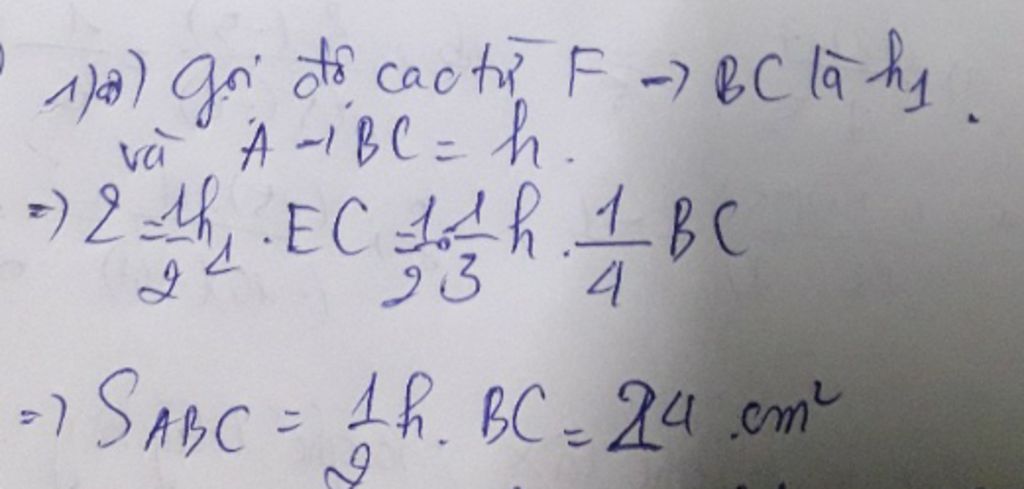 1)a) Gọi độ cao từ F → BC là h₁.
và A → BC = h.
=> 2 = 1/2 h₁ . EC = 1/2 . 1/3 h . 1/4 BC
=> S ABC = 1/2 h . BC = 24 cm²